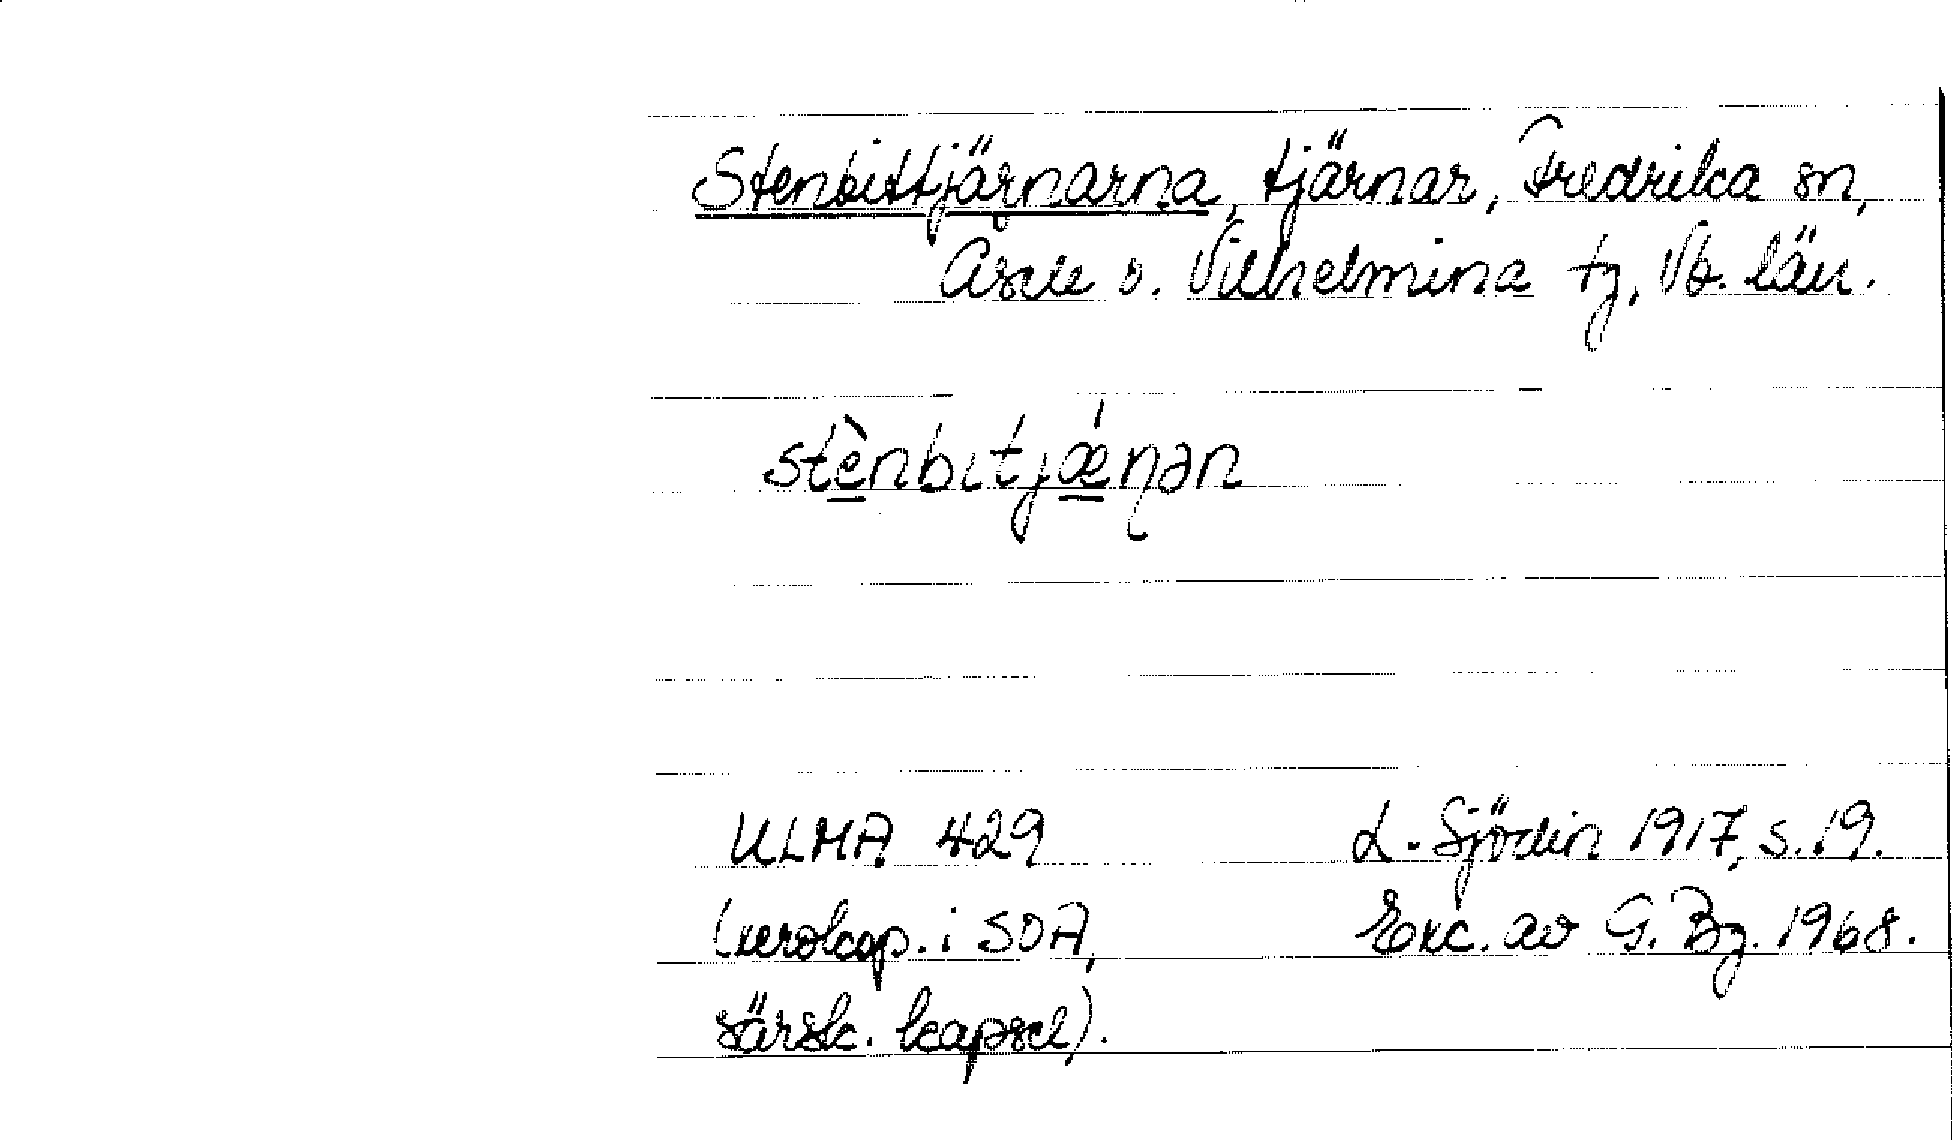 Stenbittjärnarna, tjärnar, Fredrika sn,
Åsele o. Vilhelmina tg, Vb. län.
stènbιtjǽn̨ən
ULMA 429
L. Sjödin 1917, s. 19.
(xeroxkop. i SOA,
Exc. av G. Bg. 1968.
särsk. kapsel).